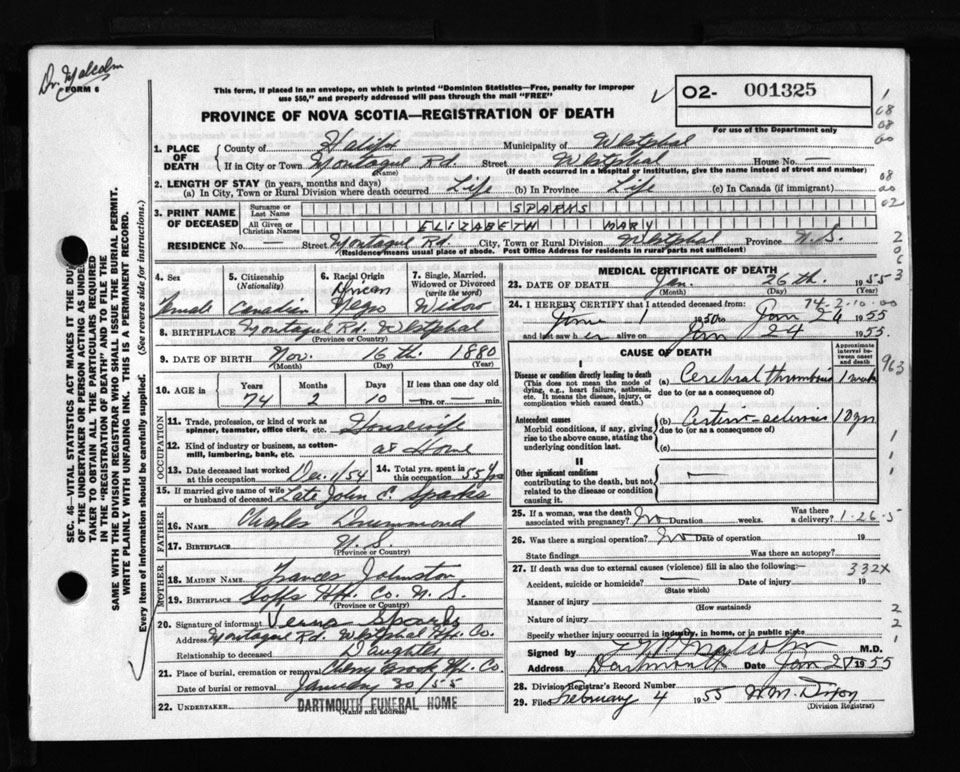 Dr. Malcolm
FORM 6
This form, if placed in an envelope, on which is printed "Dominion Statistics—Free, penalty for improper
use $50," and properly addressed will pass through the mail "FREE"
02- 001325
PROVINCE OF NOVA SCOTIA—REGISTRATION OF DEATH
For use of the Department only
SEC. 46—VITAL STATISTICS ACT MAKES IT THE DUTY
OF THE UNDERTAKER OR PERSON ACTING AS UNDERTAKER
TO OBTAIN ALL THE PARTICULARS REQUIRED
IN THE "REGISTRATION OF DEATH" AND TO FILE THE
SAME WITH THE DIVISION REGISTRAR WHO SHALL ISSUE THE BURIAL PERMIT.
WRITE PLAINLY WITH UNFADING INK. THIS IS A PERMANENT RECORD.
Every item of information should be carefully supplied. (See reverse side for instructions.)
1. PLACE OF DEATH
County of Halifx Municipality of Westphal
If in City or Town Montague Rd. Street Westphal House No. —
(Name) (If death occurred in a hospital or institution, give the name instead of street and number)
2. LENGTH OF STAY (in years, months and days)
(a) In City, Town or Rural Division where death occurred Life (b) In Province Life (c) In Canada (if immigrant)
3. PRINT NAME OF DECEASED
Surname or Last Name SPARKS
All Given or Christian Names ELIZABETH MARY
RESIDENCE No. — Street Montague Rd. City, Town or Rural Division Westphal Province N.S.
(Residence means usual place of abode. Post Office Address for residents in rural parts not sufficient)
4. Sex Female
5. Citizenship (Nationality) Canadian
6. Racial Origin African Negro
7. Single, Married, Widowed or Divorced (write the word) Widow
8. BIRTHPLACE Montague Rd. Westphal
(Province or Country)
9. DATE OF BIRTH Nov. 16 th. 1880
(Month) (Day) (Year)
10. AGE in Years 74 Months 2 Days 10 If less than one day old — hrs. or — min.
OCCUPATION
11. Trade, profession, or kind of work as spinner, teamster, office clerk, etc. Housewife
12. Kind of industry or business, as cotton-mill, lumbering, bank, etc. at Home
13. Date deceased last worked at this occupation Dec. 1/54
14. Total yrs. spent in this occupation 55 yrs
15. If married give name of wife or husband of deceased Late John C. Sparks
FATHER
16. NAME Charles Drummond
17. BIRTHPLACE N.S.
(Province or Country)
MOTHER
18. MAIDEN NAME Frances Johnston
19. BIRTHPLACE Goffs Hfx. Co. N.S.
(Province or Country)
20. Signature of informant Verna Sparks
Address Montague Rd. Westphal Hfx. Co.
Relationship to deceased Daughter
21. Place of burial, cremation or removal Cherry Brook Hfx. Co.
Date of burial or removal January 30/55
22. UNDERTAKER DARTMOUTH FUNERAL HOME
(Name and address)
MEDICAL CERTIFICATE OF DEATH
23. DATE OF DEATH Jan. 26th. 1955
(Month) (Day) (Year)
74-2-10-00
24. I HEREBY CERTIFY that I attended deceased from
June 1 1950 to Jan 26 1955
and last saw her alive on Jan 24 1955.
CAUSE OF DEATH
Approximate interval between onset and death
I
Disease or condition directly leading to death
(This does not mean the mode of dying, e.g., heart failure, asthenia, etc. It means the disease, injury, or complication which caused death.)
(a) Cerebral thrombosis 1 week
due to (or as a consequence of)
Antecedent causes
Morbid conditions, if any, giving rise to the above cause, stating the underlying condition last.
(b) Arterio-sclerosis 10 yrs
due to (or as a consequence of)
(c)
II
Other significant conditions
contributing to the death, but not related to the disease or condition causing it.
—
25. If a woman, was the death associated with pregnancy? No Duration weeks. Was there a delivery?
1-26-5
26. Was there a surgical operation? No Date of operation 19
State findings Was there an autopsy?
27. If death was due to external causes (violence) fill in also the following:
332X
Accident, suicide or homicide? — Date of injury 19
(State which)
Manner of injury
(How sustained)
Nature of injury
Specify whether injury occurred in industry, in home, or in public place
Signed by Malcolm M.D.
Address Dartmouth Date Jan 27 1955
28. Division Registrar's Record Number
29. Filed February 4 1955 W.M. Dixon
(Division Registrar)
963